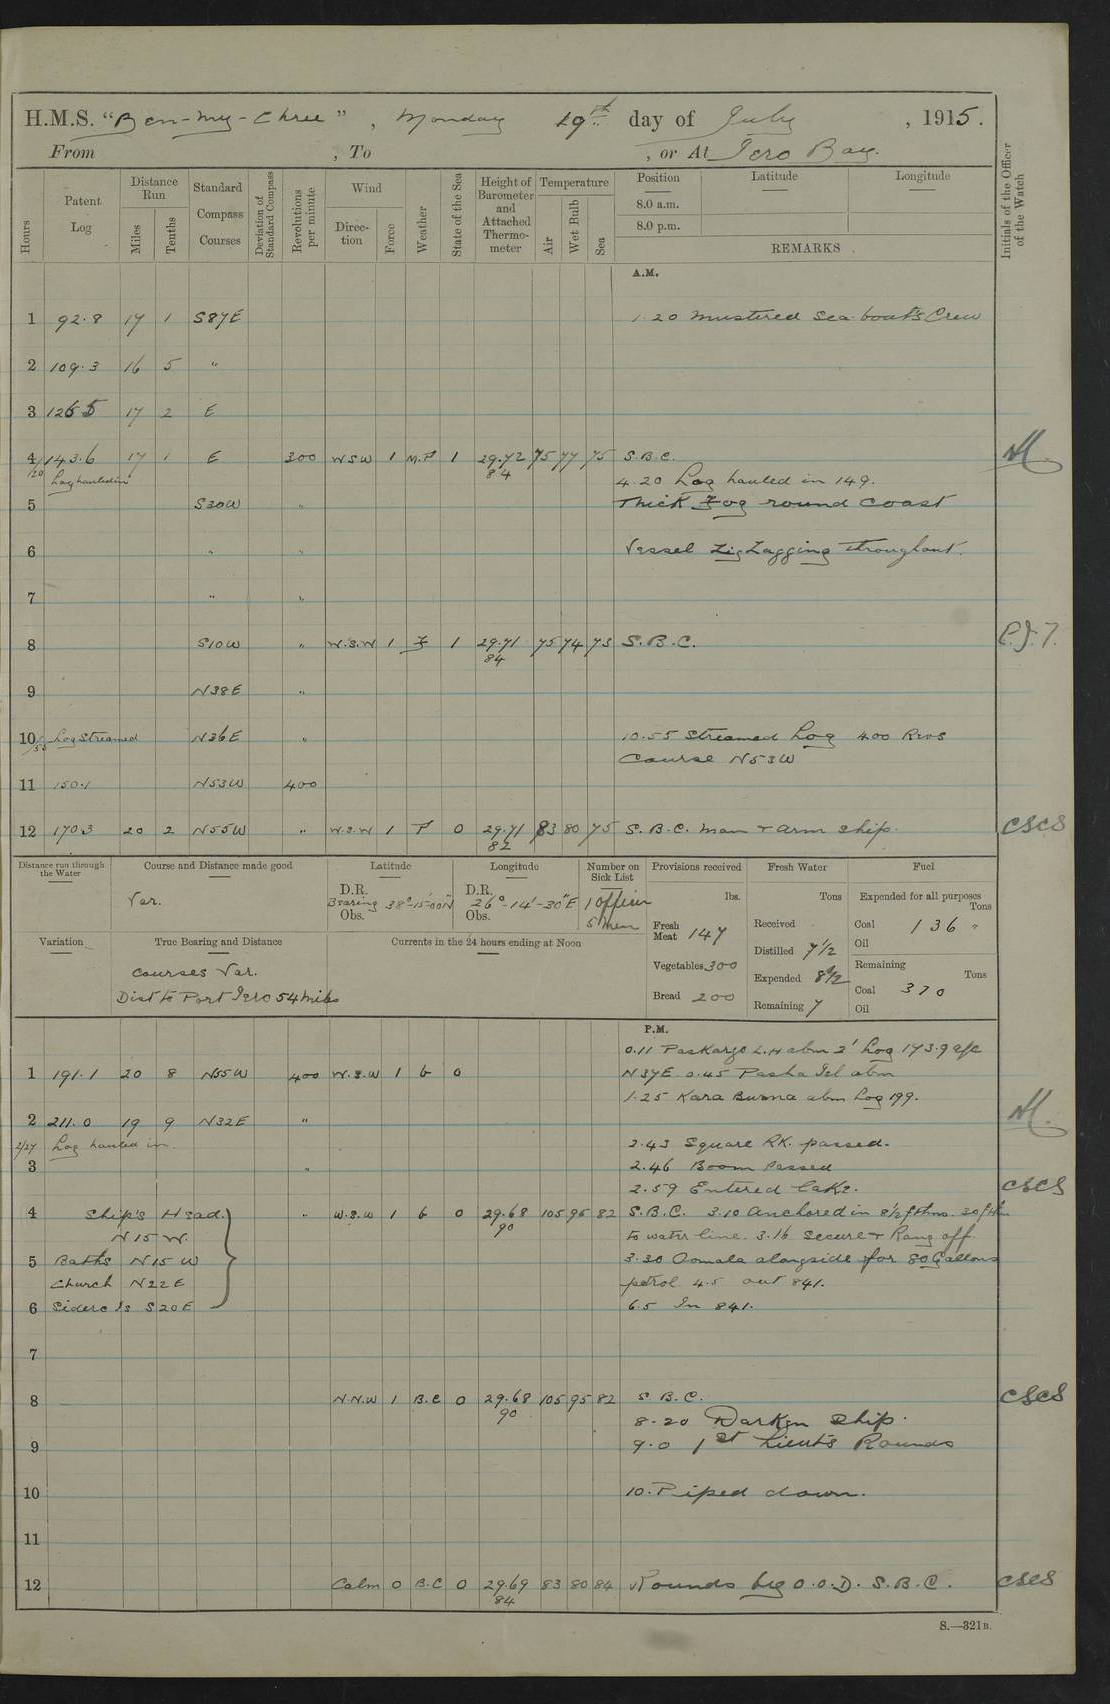 H.M.S. "Ben-my-Chree", Monday 19th day of July, 1915.
From , To , or At Iero Bay.
Hours Patent Log Distance Run Miles Tenths Standard Compass Courses Deviation of Standard Compass Revolutions per minute Wind Direction Force Weather State of the Sea Height of Barometer and Attached Thermometer Temperature Air Wet Bulb Sea Position Latitude Longitude Initials of the Officer of the Watch
8.0 a.m.
8.0 p.m.
REMARKS
A.M.
1 92.8 17 1 S87E 1.20 Mustered Sea-boat's Crew
2 109.3 16 5 "
3 126 5 17 2 E
4 143.6 17 1 E 300 WSW 1 M.F 1 29.72 75 77 75 S.B.C.
/20 Log hauled in 84 4.20 Log hauled in 149.
5 S30W " Thick Fog round Coast
6 " " Vessel ZigZagging throughout.
7 " "
8 S10W " W.S.W 1 F 1 29.71 75 74 73 S.B.C. P.J.T.
84
9 N38E "
10/55 Log Streamed N36E " 10.55 Streamed Log 400 Revs
Course N53W
11 150.1 N53W 400
12 170.3 20 2 N55W " W.S.W 1 F 0 29.71 83 80 75 S.B.C. Man + Arm Ship. CSCS
82
Distance run through the Water Course and Distance made good Latitude Longitude Number on Sick List Provisions received Fresh Water Fuel
Var. D.R. Bearing 38°-15'-00"N Obs. D.R. 26°-14'-30"E Obs. 1 Officer 5 Men
lbs. Tons Expended for all purposes Tons
Fresh Meat 147 Received Coal 136 "
Distilled 7 1/2 Oil
Variation True Bearing and Distance Currents in the 24 hours ending at Noon
Courses Var. Vegetables 300 Expended 8 1/2 Remaining Tons
Dist to Port Iero 54 miles Bread 200 Remaining 7 Coal 370
Oil
P.M.
0.11 Paskargo L.H abm 2' Log 173.9 a/c
1 191.1 20 8 N55W 400 W.S.W 1 b 0 N37E. 0.45 Pasha Isl abm
1.25 Kara Burna abm Log 199.
2 211.0 19 9 N32E "
2/27 Log hauled in 2.43 Square RK. passed.
3 " 2.46 Boom Passed
2.59 Entered Lake. CSCS
4 Ship's Head. " W.S.W 1 b 0 29.68 105 95 82 S.B.C. 3.10 Anchored in 8 1/2 fthms. 30 fthm
N15W. 90 to water line. 3.16 Secure + Rang off.
5 Baths N15W 3.30 Oomala alongside for 80 Gallons
Church N22E petrol 4.5 out 841.
6 Siderc Is S20E 6.5 In 841.
7
8 N.N.W 1 B.C 0 29.68 105 95 82 S.B.C. CSCS
90 8.20 Darken Ship.
9 9.0 1st Lieut's Rounds
10 10. Piped down.
11
12 Calm 0 B.C 0 29.69 83 80 84 Rounds by O.O.D. S.B.C. CSCS
84
S.—321B.